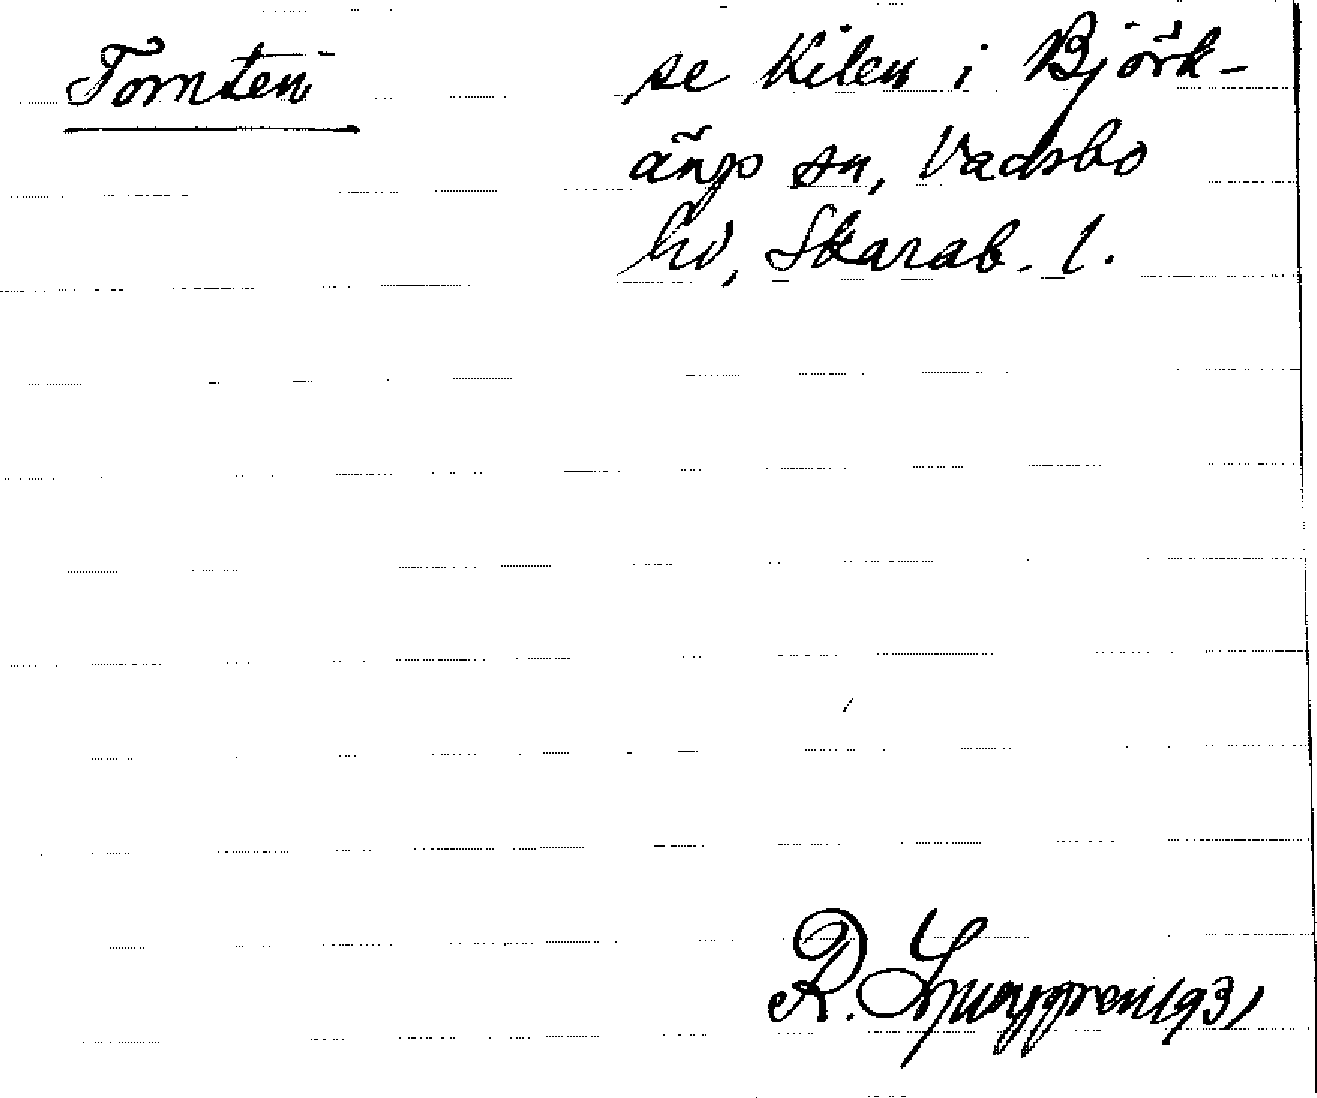 Tomten
se Kilen i Björk-
ängs sn, Vadsbo
hd, Skarab. l.
R. Ljunggren 1931